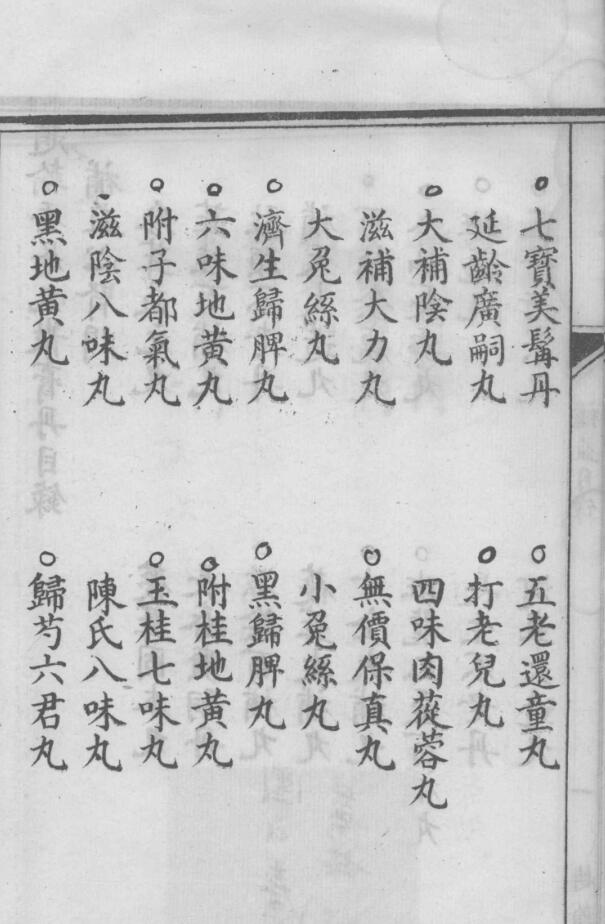 七寶美髯丹
五老還童丸
延齡廣嗣丸
打老兒丸
大補陰丸
四味肉蓯蓉丸
滋補大力丸
無價保真丸
大兔絲丸
小兔絲丸
濟生歸脾丸
黑歸脾丸
六味地黃丸
附桂地黃丸
附子都氣丸
玉桂七味丸
滋陰八味丸
陳氏八味丸
黑地黃丸
歸芍六君丸